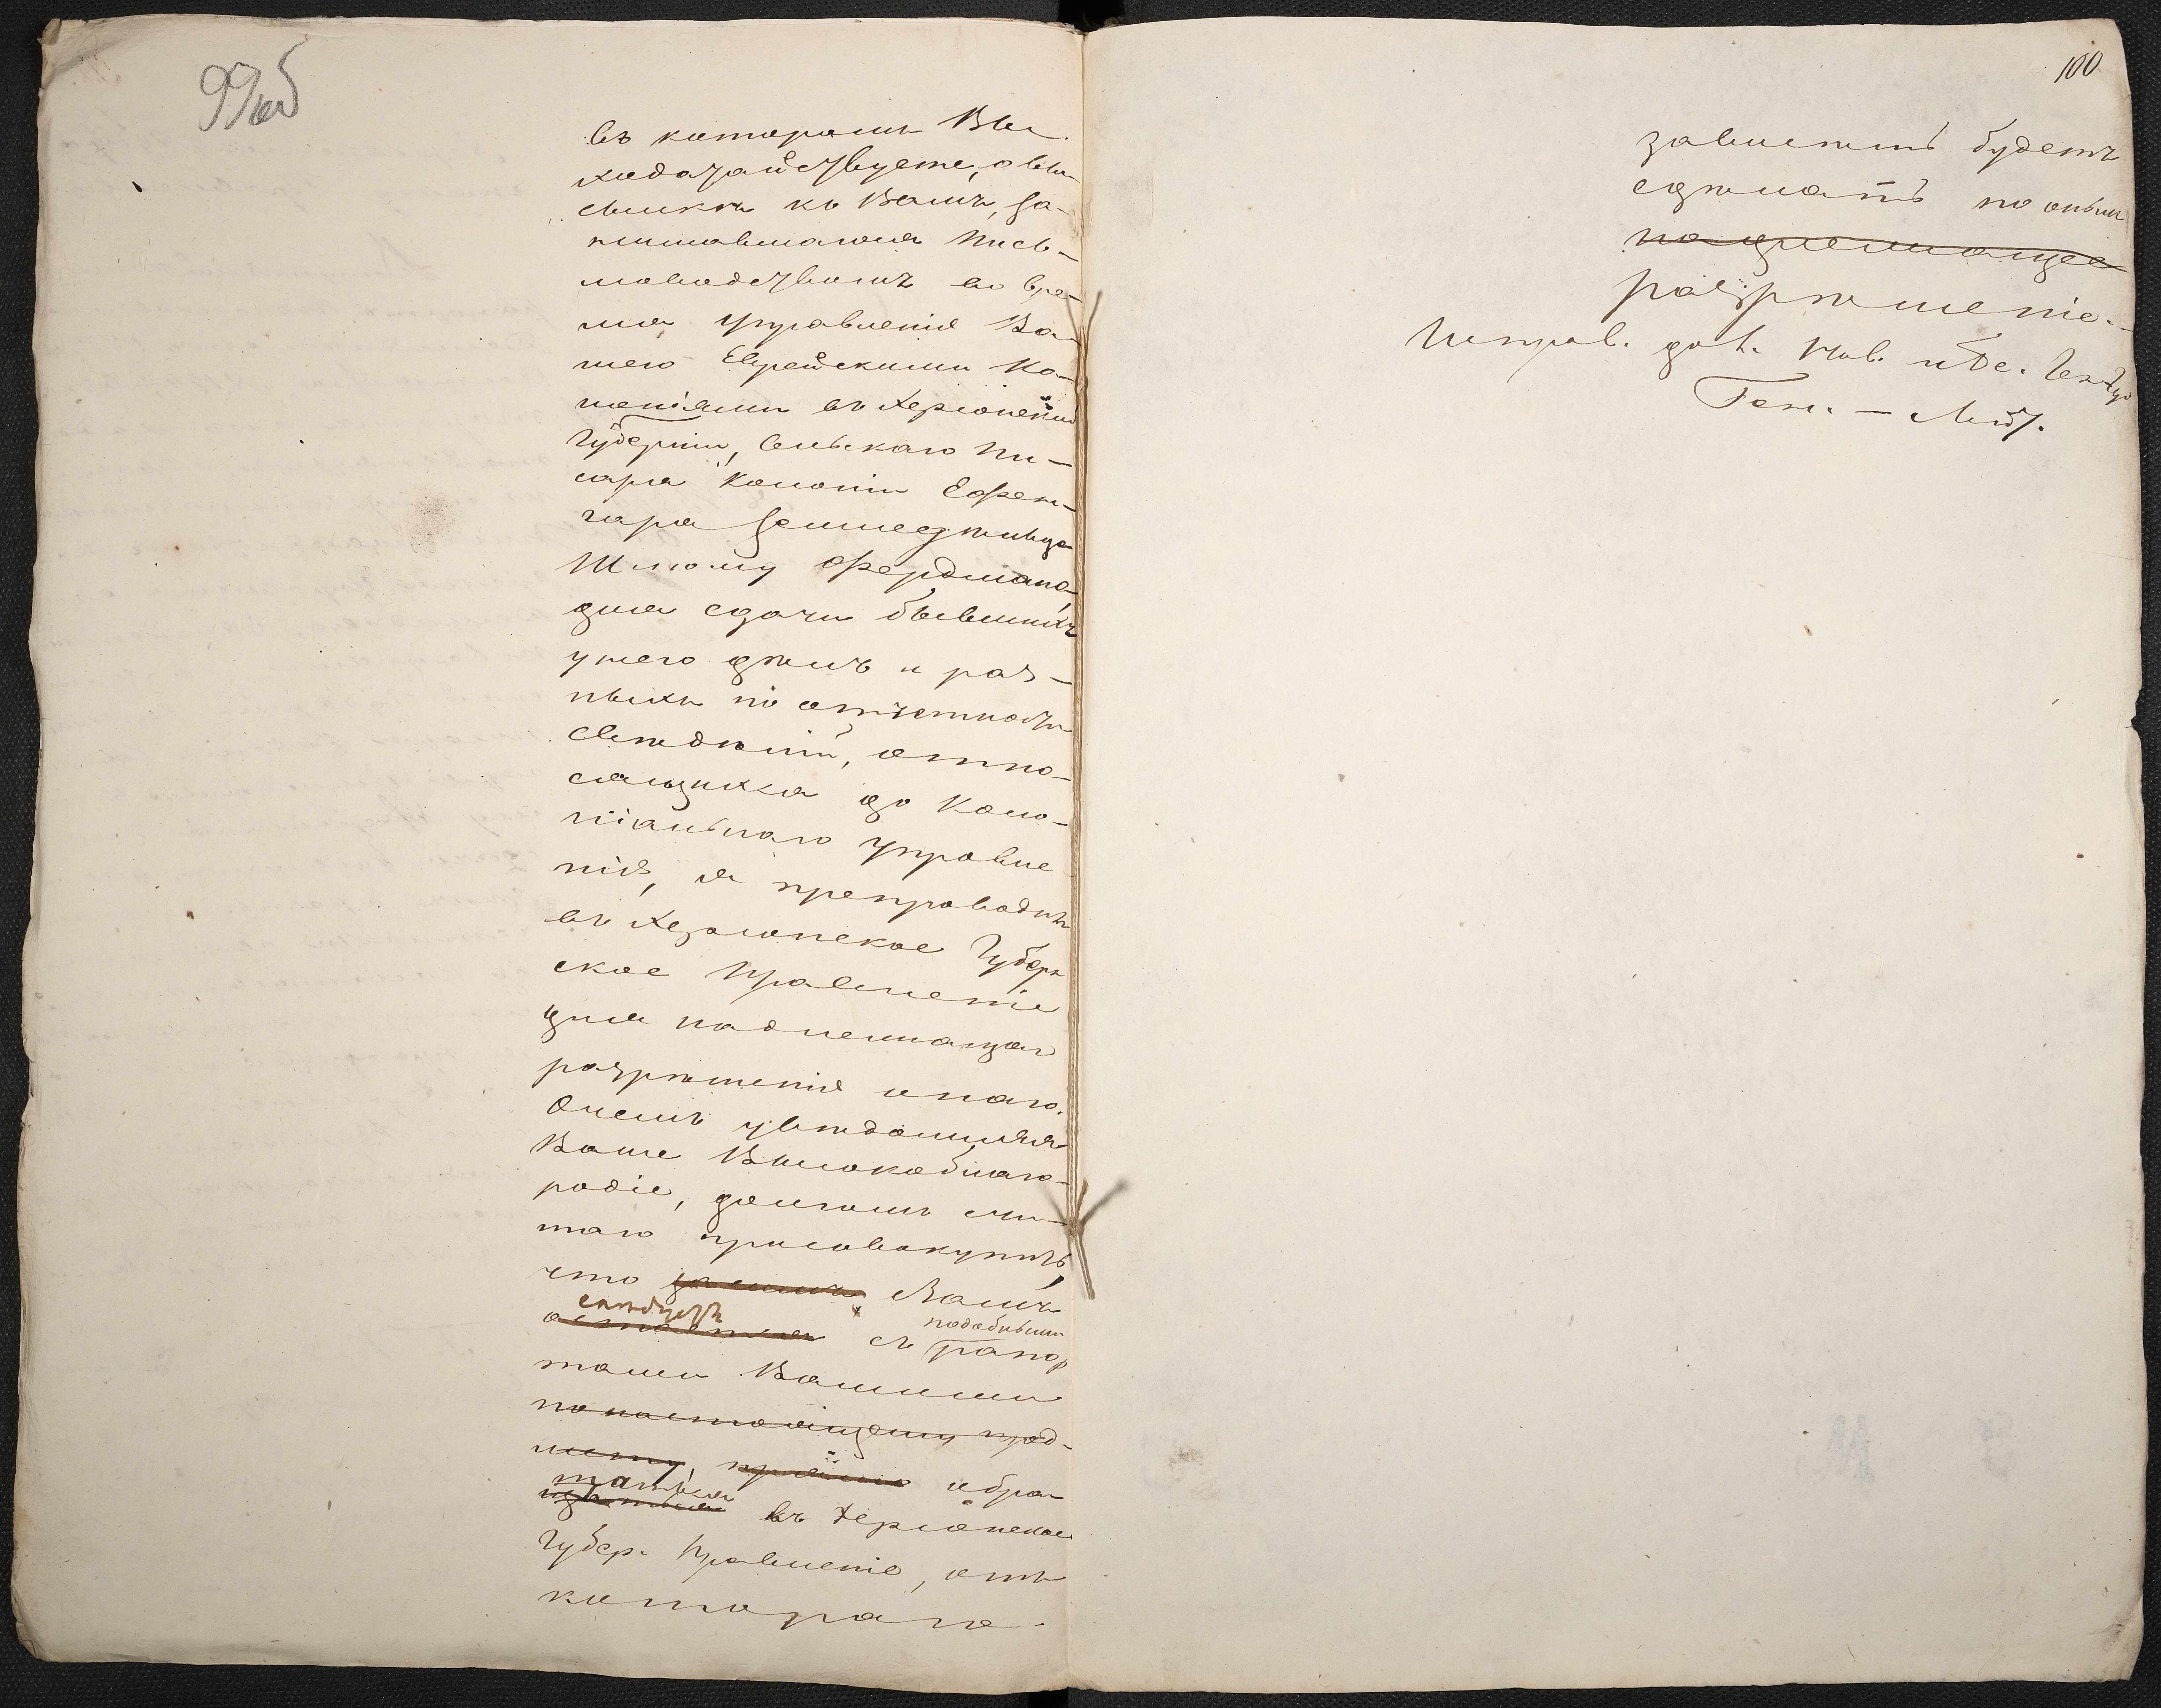 99об
въ которомъ Вы
ходатайствуете, о вы-
сылкѣ къ Вамъ, за-
нимавшагося Пись-
моводствомъ во вре-
мя Управленія Ва-
шего Еврейскими Ко-
лоніями въ Херсонской
Губерніи, Сельскаго Пи-
саря Колоніи Ефен-
гара Землед
Шлюму Фердмана,
для сдачи бывшихъ
у него дѣлъ и раз-
ныхъ по отчетности
свѣдѣній, относ-
сящихся до Коло-
ніальнаго управле
нія, я препроводилъ
въ Херсонское Губерн
ское Правленіе
для надлежащаго
разрѣшенія онаго.
О чемъ увѣдомляя
Ваше Высокоблаго-
родіе, долгомъ счи-
таю присовокупить,
что Вамъ
слѣдуетъ подобными
съ рапор
тами Вашими
по настоящему пред-
мету, прямо обра-
щаться
въ Херсонское
Губер. Правленіе, отъ
котораго
100
зависѣть будетъ
сдѣлать по онымъ
надлежащее
разрѣшеніе.
Исправ. дол. Нов. и Бе. Ген. Гу
Ген. – Лейт.